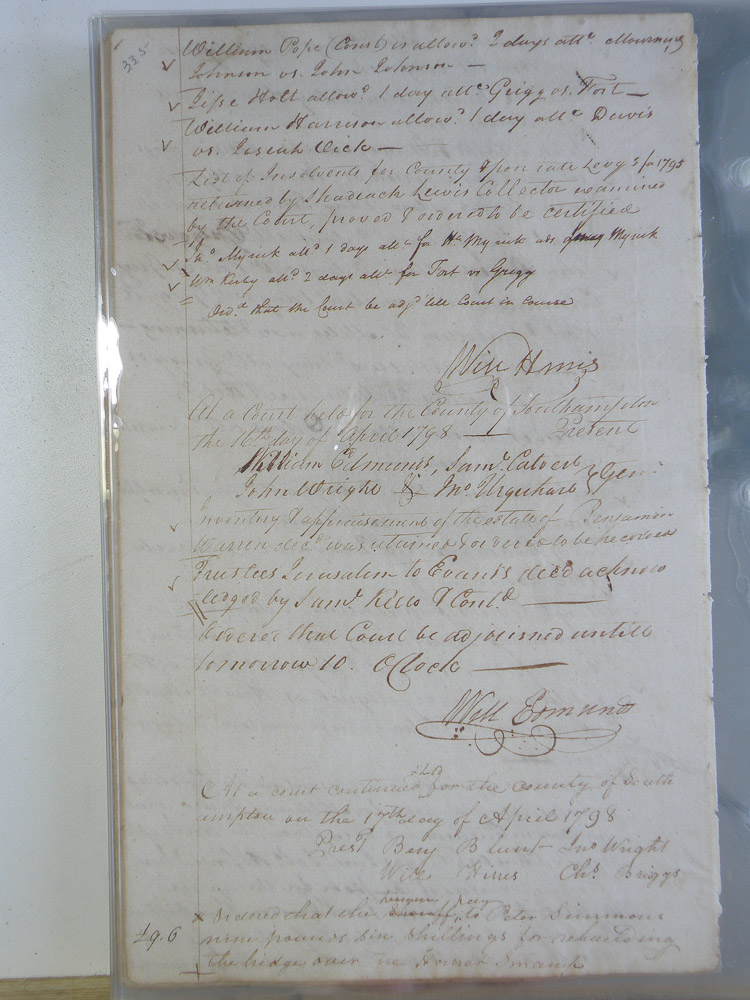 335
William Pope (Const) is allowd. 2 days attc. Mourning
Johnson vs. John Johnson —
Jesse Holt allowd. 1 day attc Grigg vs. Fort —
William Harrison allowd. 1 day attc Davis
vs. Josiah Vick —
List of Insolvents for County & pon rate Levy s for 1795
returned by Shadrach Lewis Collector examined
by the Court, proved & ordered to be certified
Jno. Myrick alld 1 days attc for Hn Myrick ads Myrick
Wm Kerby alld 2 days attc for Fort vs Grigg
Ord.d that the Court be adjd till Court in course
Will Hines
At a Court held for the County of Southampton
the 16th day of April 1798 — Present
William Edmunds, Saml. Calvert
John Wright & Jno. Urquhart } Gen:
Inventory & appraisement of the estate of Benjamin
Warren decd. was returned & ordered to be recorded
Trustees Jerusalem to Evans's deed acknow
ledged by Saml Kello & Contd —
Ordered that Court be adjourned untill
tomorrow 10. O,Clock —
Will Edmunds
At a court continued & held for the county of South
ampton on the 17th day of April 1798
Prest Benj Blunt Jno Wright
Will Hines Chs. Briggs
Ordered that the pay to Peter Simmons
£9.6 nine pounds six shillings for rebuilding
the bridge over the